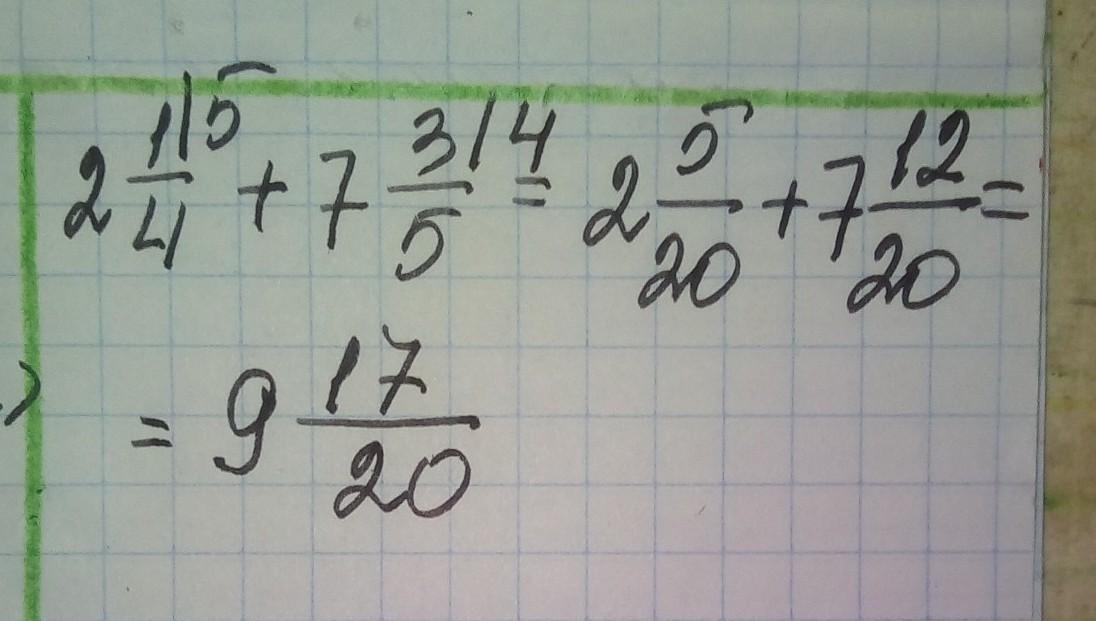 2 1|5/4 + 7 3/4/5 = 2 5/20 + 7 12/20 =
= 9 17/20